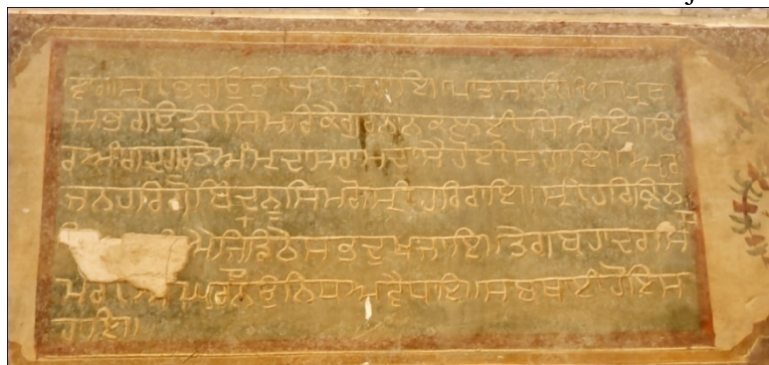 ਸ੍ਰੀ ਭਗਉਤੀ ਜੀ ਸਹਾਇ॥
ਮਭਗਉਤੀ ਸਿਮਰਿਕੈਗੁਰਨਾਨਕਲਈਧਿਆਇ॥ਫਿ
ਰਅੰਗਦਗੁਰਤੇਅੰਮਰਦਾਸਰਾਮਦਾਸੈਹੋਈਸਹਾਇ॥ਅਰ
ਜਨਹਰਿਗੋਬਿੰਦਨੂਸਿਮਰੋਸ੍ਰੀਹਰਿਰਾਇ॥ਸ੍ਰੀਹਰਿਕ੍ਰਿਸਨ
ਐਜਿਸੁਡਿਠੇਸਭਦੁਖਜਾਇ॥ਤੇਗਬਹਾਦਰਸਿ
ਮਰੀਐਘਰਨਉਨਿਧਆਵੈਧਾਇ॥ਸਬਥਾਈਹੋਇਸ
ਹਾਇ॥